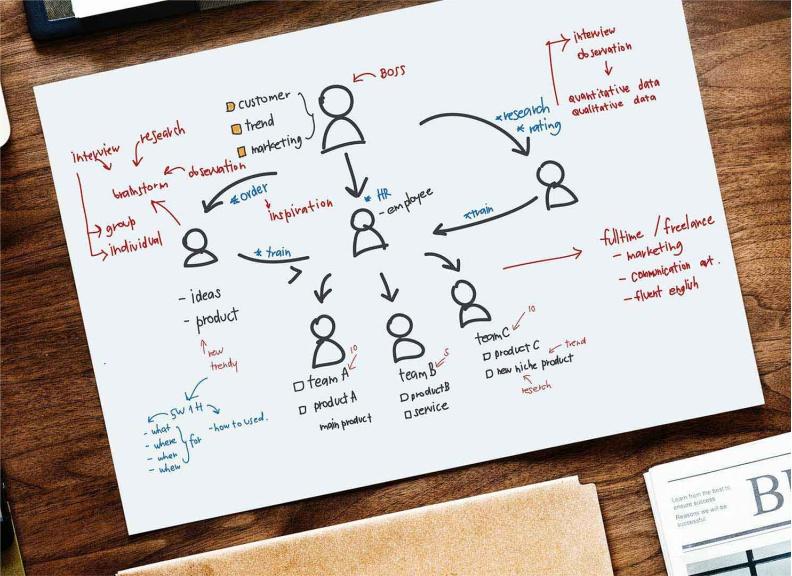 BOSS
customer
trend
marketing
interview
observation
quantitative data
qualitative data
*research
*rating
research
interview
observation
brainstorm
group
individual
*order
inspiration
* HR
- employee
*train
* train
- ideas
- product
new
trendy
5W1H
- what
- where
- when
for
- how to used.
fulltime / freelance
- marketing
- communication
- fluent english
10
team A
product A
main product
5
team B
product B
service
10
team C
product C
trend
new niche product
research
Learn from the best to
ensure success
Reasons we will be
successful